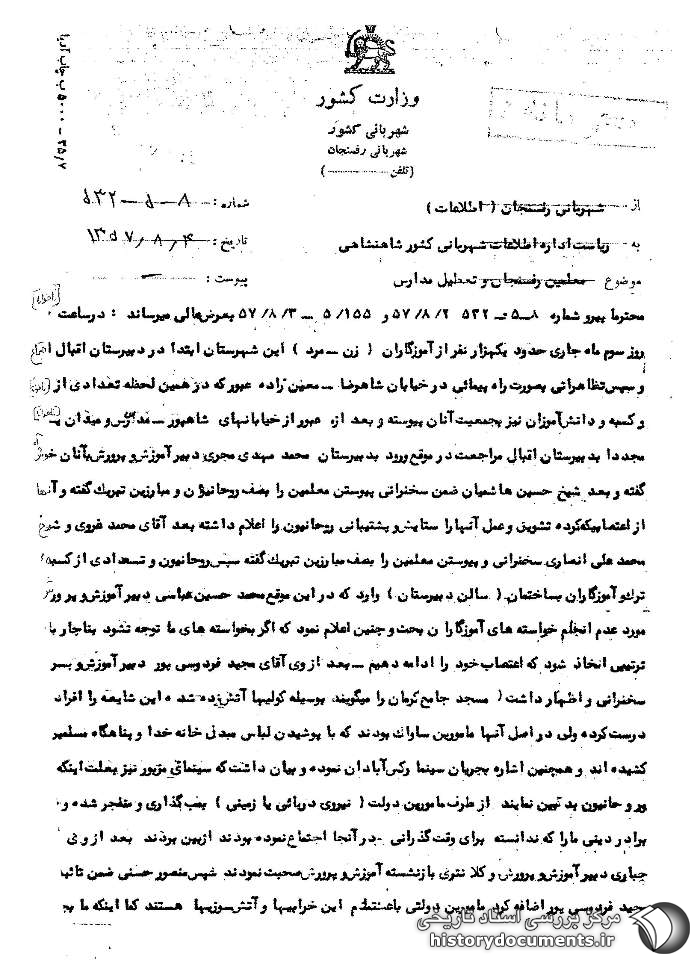 ۳۵/۷ – ۵۰۰۰ ب چاپ آریا
وزارت کشور
شهربانی کشور
شهربانی رفسنجان
(تلفن ............)
از شهربانی رفسنجان (اطلاعات)
شماره : ۸ – ۵ – ۵۳۲
به ریاست اداره اطلاعات شهربانی کشور شاهنشاهی
تاریخ : ۱۳۵۷/۸/۴
موضوع معلمین رفسنجان و تعطیل مدارس
پیوست : –
محترما پیرو شماره ۸ – ۵ – ۵۳۲ ۵۷/۸/۲ و ۵/۱۵۵ – ۵۷/۸/۳ بعرض عالی میرساند : در ساعت
روز سوم ماه جاری حدود یکهزار نفر از آموزگاران ( زن – مرد ) این شهرستان ابتدا در دبیرستان اقبال
و سپس تظاهراتی بصورت راه پیمائی در خیابان شاهرضا – معین زاده عبور که در همین لحظه تعدادی از
و کسبه و دانش آموزان نیز بجمعیت آنان پیوسته و بعد از عبور از خیابانهای شاهپور – مدرس و میدان
مجددا بدبیرستان اقبال مراجعت در موقع ورود بدبیرستان محمد مهدی مجری دبیر آموزش و پرورش بآنان خوش
گفته و بعد شیخ حسین هاشمیان ضمن سخنرانی پیوستن معلمین را بصف روحانیون و مبارزین تبریک گفته و آنها
از اعتصابیکه کرده تشویق و عمل آنها را ستایش و پشتیبانی روحانیون را اعلام داشته بعد آقای محمد غروی و شیخ
محمد علی انصاری سخنرانی و پیوستن معلمین را بصف مبارزین تبریک گفته سپس روحانیون و تعدادی از کسبه
ترک و آموزگاران بساختمان ( سالن دبیرستان ) وارد که در این موقع محمد حسین عباسی دبیر آموزش و پرورش
مورد عدم انجام خواسته های آموزگاران بحث و چنین اعلام نمود که اگر بخواسته های ما توجه نشود بناچار
ترتیبی اتخاذ شود که اعتصاب خود را ادامه دهیم – بعد از وی آقای مجید فردوسی پور دبیر آموزش و
سخنرانی و اظهار داشت ( مسجد جامع کرمان را میگویند بوسیله کولیها آتش زده شده این شایعه را افراد
درست کرده ولی در اصل آنها مامورین ساواک بودند که با پوشیدن لباس مبدل خانه خدا و پناهگاه
کشیده اند و همچنین اشاره بجریان سینما رکس آبادان نموده و بیان داشت که سینمای مزبور نیز بعلت اینکه
روحانیون بدبین نمایند از طرف مامورین دولت ( نیروی دریائی یا زمینی ) بمب گذاری و منفجر شده و
برادر دینی ما را که ندانسته برای وقت گذرانی در آنجا اجتماع نموده بودند از بین بردند بعد از وی
جباری دبیر آموزش و پرورش و کلانتری بازنشسته آموزش و پرورش صحبت نمودند سپس منصور حسنی ضمن تائید
مجید فردوسی پور اضافه کرد مامورین دولتی باعث تمام این خرابیها و آتش سوزیها هستند کما اینکه ما
مرکز بررسی اسناد تاریخی
historydocuments.ir